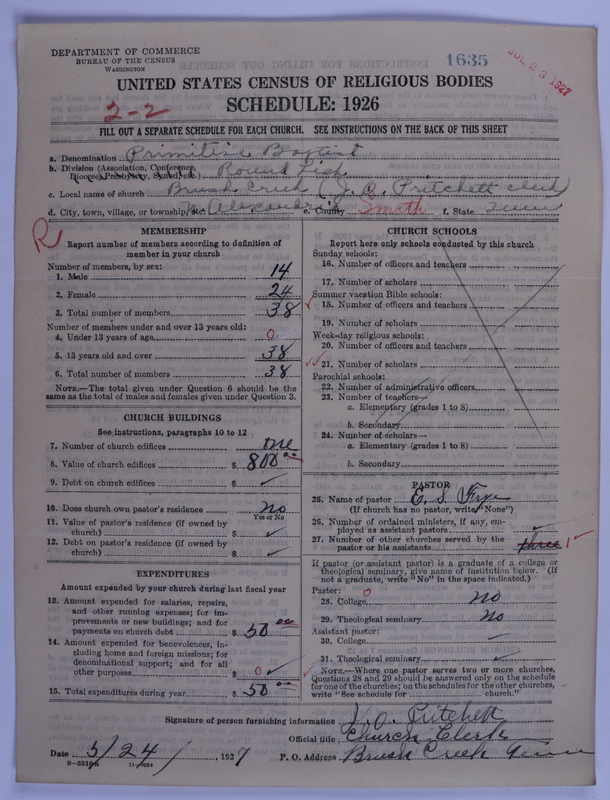 DEPARTMENT OF COMMERCE
BUREAU OF THE CENSUS
WASHINGTON
1635
JUL 23 1927
UNITED STATES CENSUS OF RELIGIOUS BODIES
SCHEDULE: 1926
2-2
FILL OUT A SEPARATE SCHEDULE FOR EACH CHURCH. SEE INSTRUCTIONS ON THE BACK OF THIS SHEET
a. Denomination Primitive Baptist
b. Division (Association, Conference, Diocese, Presbytery, Synod, etc.) Round Lick
c. Local name of church Brush Creek (J. C. Pritchett clerk
d. City, town, village, or township, etc. N. Alexandria e. County Smith f. State Tenn
R
MEMBERSHIP
Report number of members according to definition of
member in your church
Number of members, by sex:
1. Male 14
2. Female 24
3. Total number of members 38
Number of members under and over 13 years old:
4. Under 13 years of age 0
5. 13 years old and over 38
6. Total number of members 38
NOTE.—The total given under Question 6 should be the
same as the total of males and females given under Question 3.
CHURCH BUILDINGS
See instructions, paragraphs 10 to 12
7. Number of church edifices one
8. Value of church edifices $ 800 00
9. Debt on church edifices $ ✓
10. Does church own pastor's residence No
Yes or No
11. Value of pastor's residence (if owned by
church) $ ✓
12. Debt on pastor's residence (if owned by
church) $ ✓
EXPENDITURES
Amount expended by your church during last fiscal year
13. Amount expended for salaries, repairs,
and other running expenses; for im-
provements or new buildings; and for
payments on church debt $ 50 00
14. Amount expended for benevolences, in-
cluding home and foreign missions; for
denominational support; and for all
other purposes $ 0 ✓
15. Total expenditures during year $ 50 00
CHURCH SCHOOLS
Report here only schools conducted by this church
Sunday schools:
16. Number of officers and teachers
17. Number of scholars
Summer vacation Bible schools:
18. Number of officers and teachers
19. Number of scholars
Week-day religious schools:
20. Number of officers and teachers
21. Number of scholars
Parochial schools:
22. Number of administrative officers
23. Number of teachers—
a. Elementary (grades 1 to 8)
b. Secondary
24. Number of scholars—
a. Elementary (grades 1 to 8)
b. Secondary
PASTOR
25. Name of pastor E. S. Frye
(If church has no pastor, write "None")
26. Number of ordained ministers, if any, em-
ployed as assistant pastors ✓
27. Number of other churches served by the
pastor or his assistants three 1 ✓
If pastor (or assistant pastor) is a graduate of a college or
theological seminary, give name of institution below. (If
not a graduate, write "No" in the space indicated.)
Pastor: 0
28. College No
29. Theological seminary No
Assistant pastor:
30. College
31. Theological seminary ✓
NOTE.—Where one pastor serves two or more churches,
Questions 28 and 29 should be answered only on the schedule
for one of the churches; on the schedules for the other churches,
write "See schedule for church."
Signature of person furnishing information J. C. Pritchett
Official title Church Clerk
Date 5/24/ 1927 P. O. Address Brush Creek Tenn